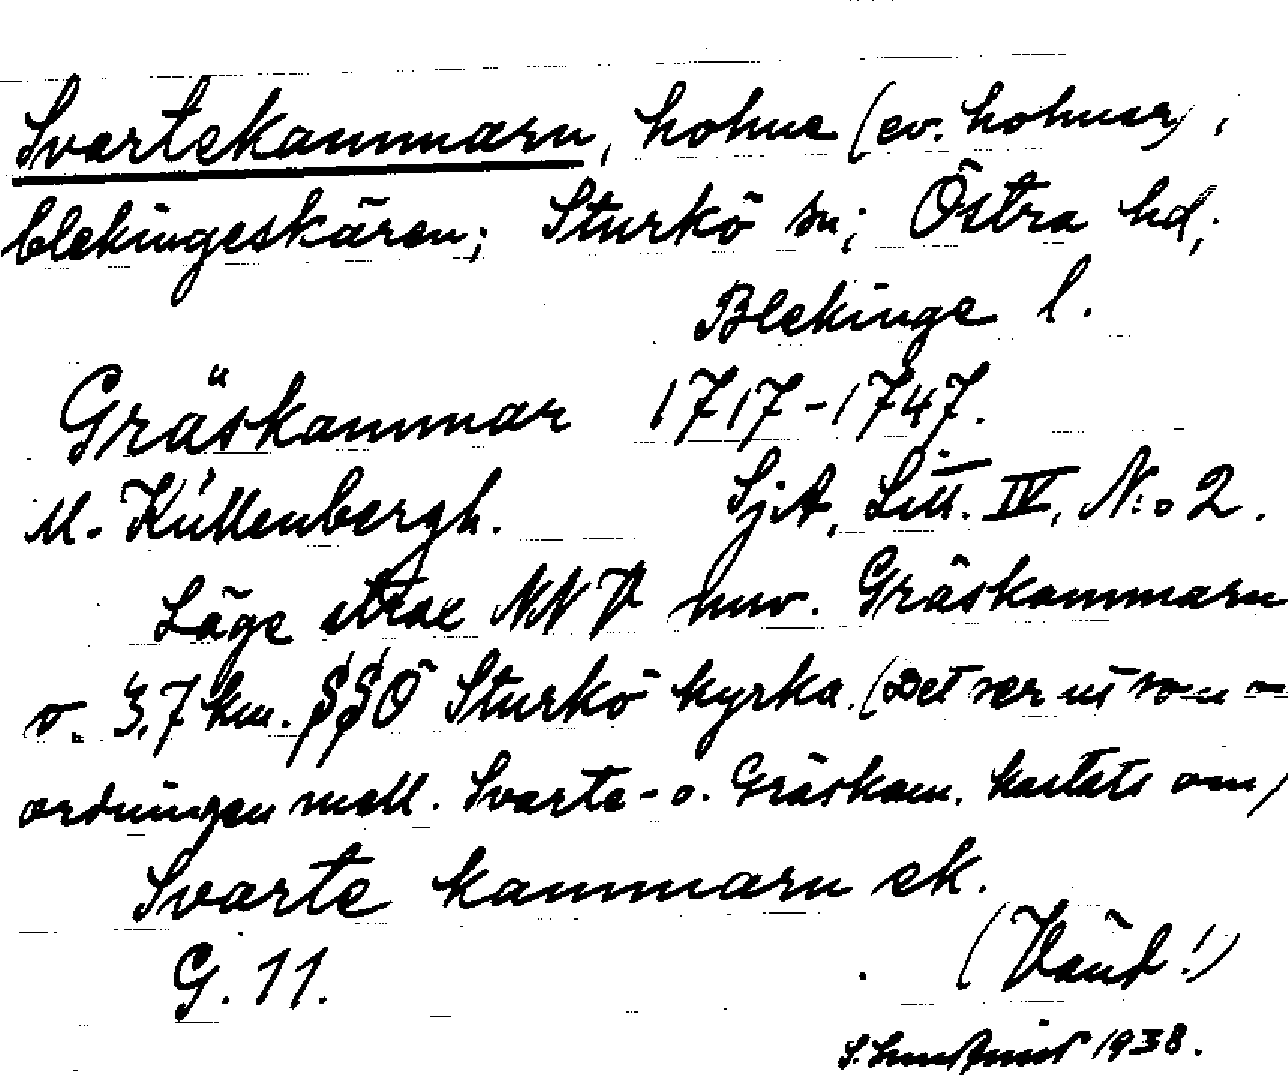 Svartekammarn, holme (ev. holmar),
blekingeskären; Sturkö sn; Östra hd;
Blekinge l.
Gräskammar 1717-1747.
M. Küllenbergh. SjA, Litt. IV, N:o 2.
Läge strax NNV nuv. Gräskammarn
o. 3,7 km. SSÖ Sturkö kyrka. (Det ser ut som
ordningen mell. Svarte- o. Gräskam. kastats om)
Svarte kammarn ek.
G. 11. (Vänd!)
1938.